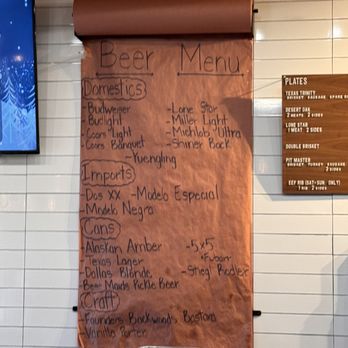 Beer Menu
Domestics
-Budweiser -Lone Star
-Budlight -Miller Light
-Coors Light -Michlob Ultra
-Coors Banquet -Shiner Bock
-Yuengling
Imports
-Dos XX -Modelo Especial
-Modelo Negra
Cans
-Alaskan Amber -5x5
-Texas Lager *Fubarr
-Dallas Blonde -Stiegl Radler
-Beer Maids Pickle Beer
Craft
-Founders Backwoods Bastard
-Vanilla Porter
PLATES
TEXAS TRINITY
BRISKET, SAUSAGE, SPARE
DESERT OAK
2 MEATS 2 SIDES
LONE STAR
1 MEAT 2 SIDES
DOUBLE BRISKET
PIT MASTER
BRISKET, TURKEY, SAUSAGE
2 SIDES
EEF RIB (SAT-SUN. ONLY)
1 RIB 2 SIDES